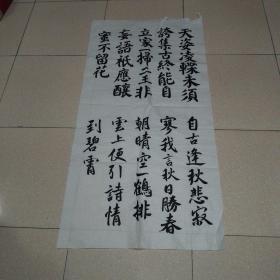 天姿凌轢未須
誇集古終能自
立家一掃二王非
妄語祇應釀
蜜不留花
自古逢秋悲寂
寥我言秋日勝春
朝晴空一鶴排
雲上便引詩情
到碧霄